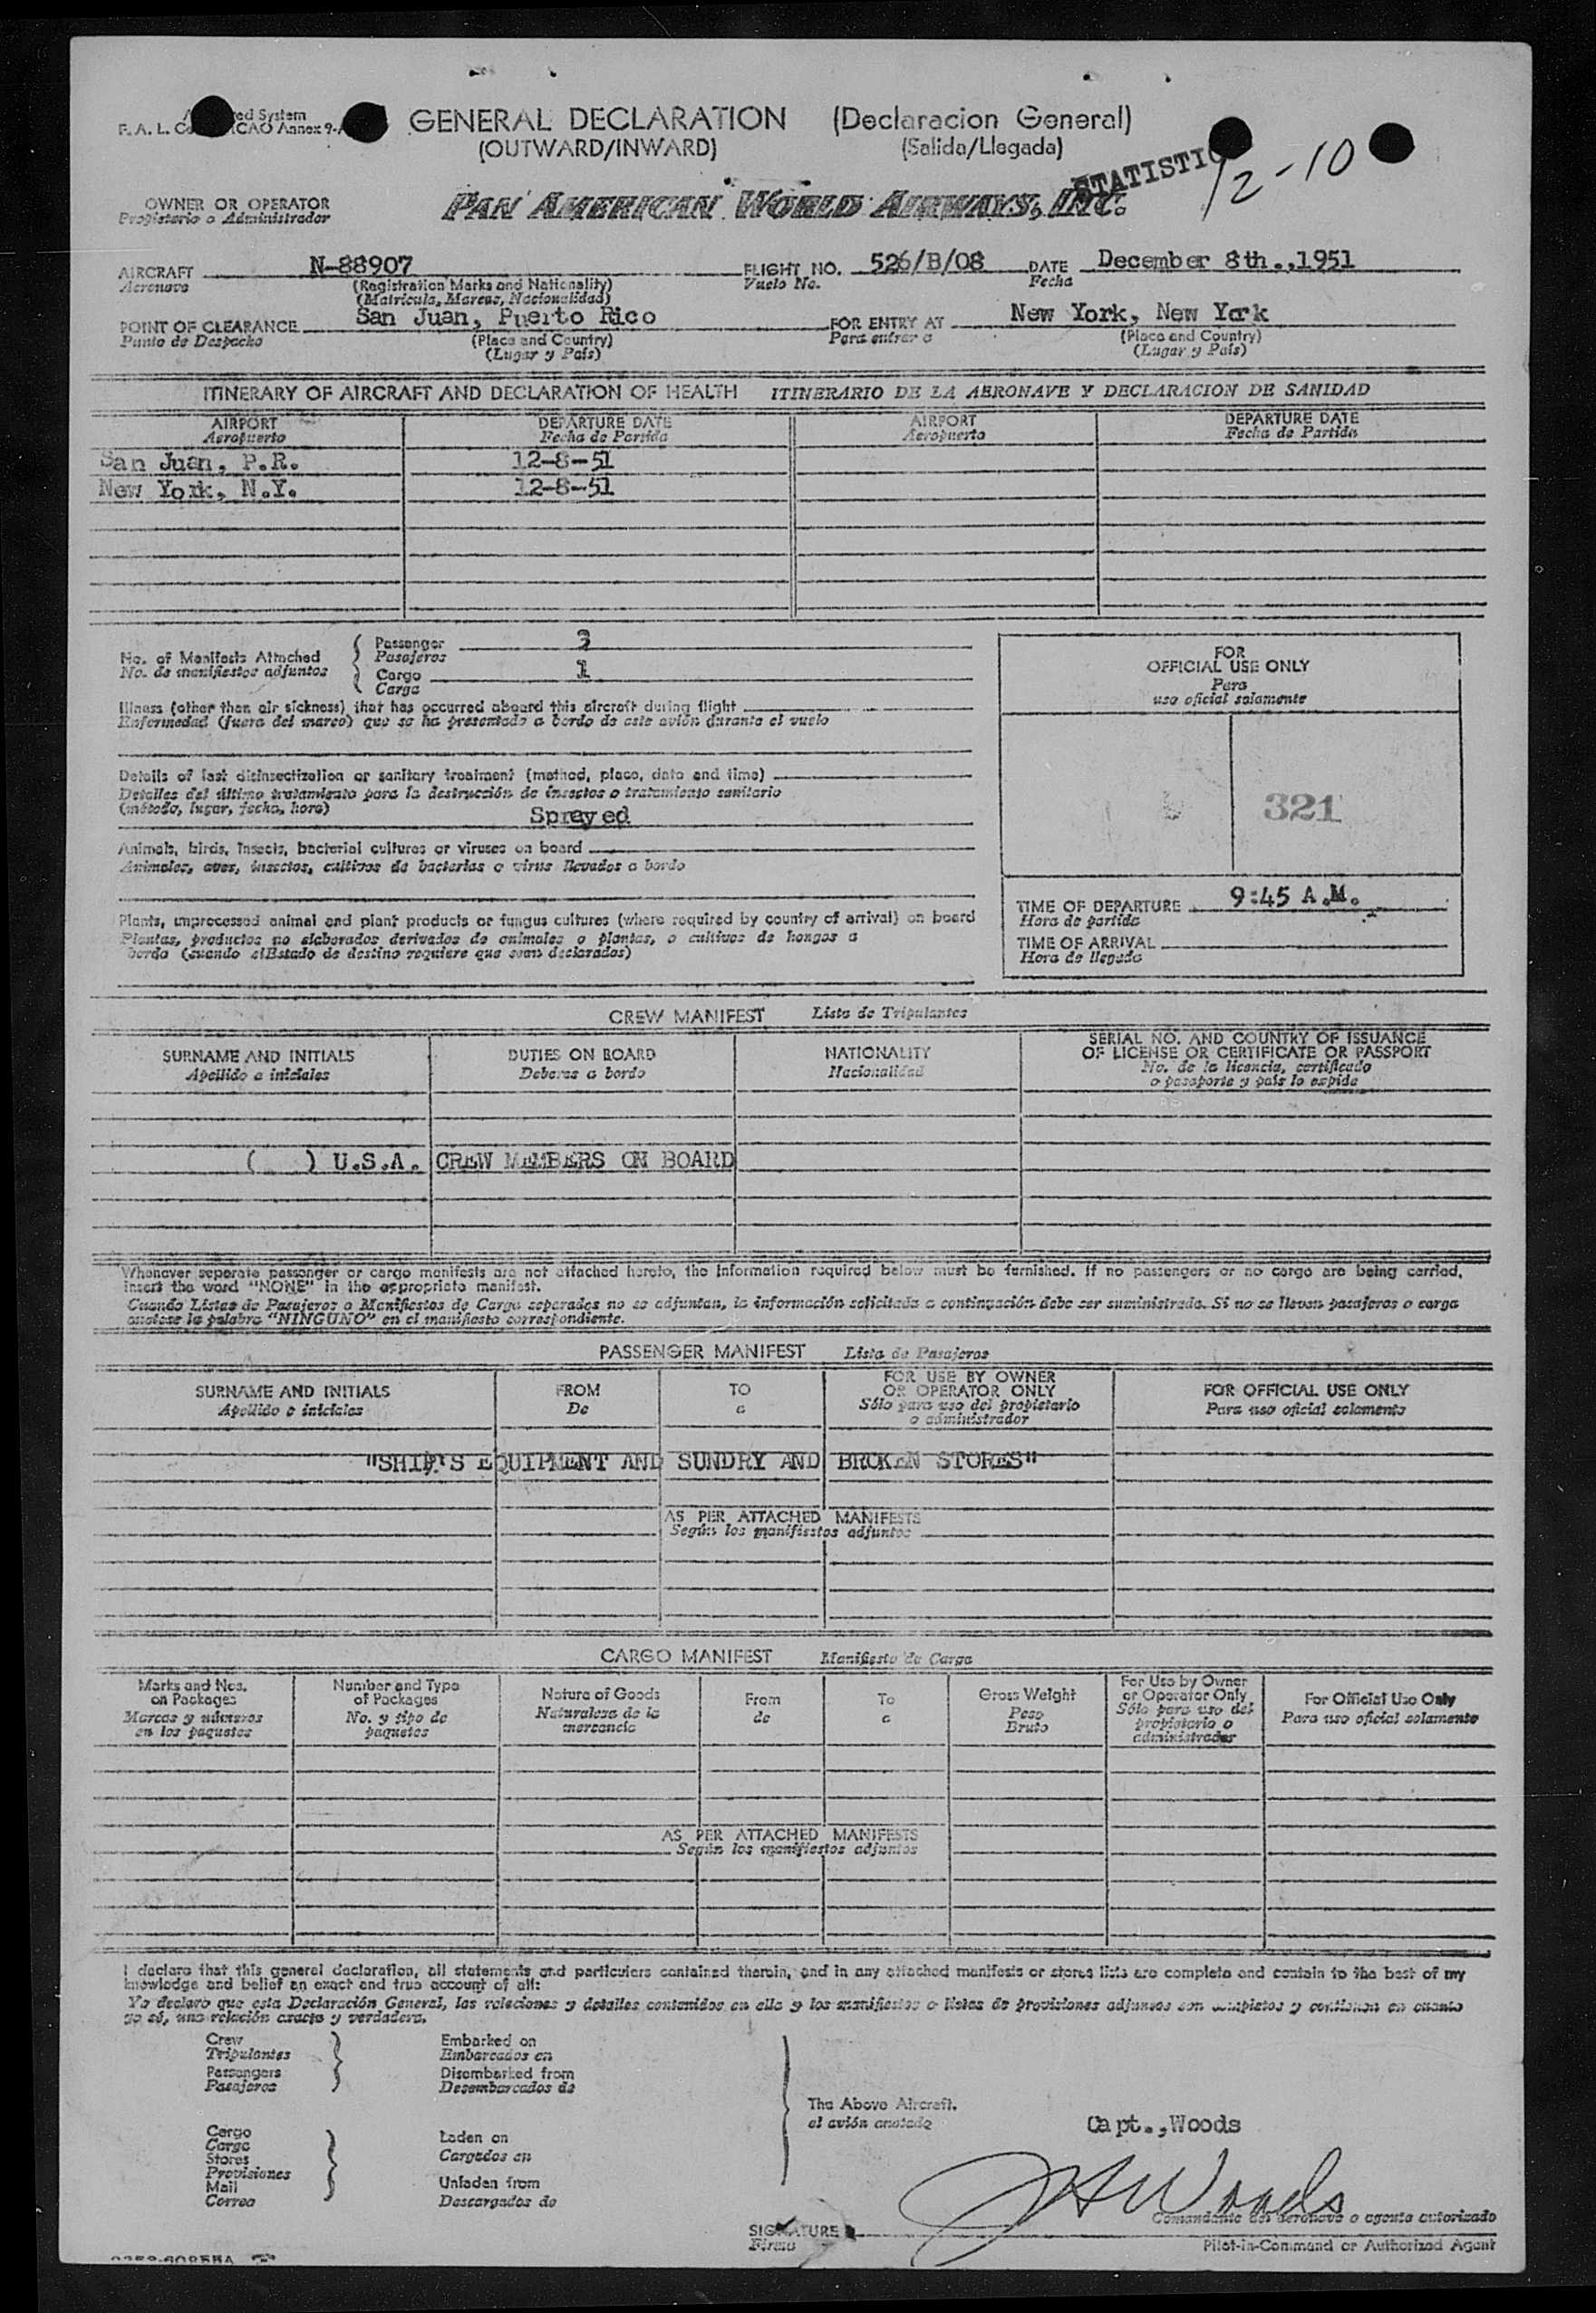 F. A. L. ICAO Annex 9-
GENERAL DECLARATION (Declaracion General)
(OUTWARD/INWARD) (Salida/Llegada)
STATISTIC
12-10
OWNER OR OPERATOR
Propietario o Administrador
PAN AMERICAN WORLD AIRWAYS, INC.
AIRCRAFT N-88907 FLIGHT NO. 526/B/08 DATE December 8th.,1951
Aeronave (Registration Marks and Nationality) Vuelo No. Fecha
(Matricula, Marcas, Nacionalidad)
POINT OF CLEARANCE San Juan, Puerto Rico FOR ENTRY AT New York, New York
Punto de Despacho (Place and Country) Para entrar a (Place and Country)
(Lugar y País) (Lugar y País)
ITINERARY OF AIRCRAFT AND DECLARATION OF HEALTH ITINERARIO DE LA AERONAVE Y DECLARACION DE SANIDAD
AIRPORT DEPARTURE DATE AIRPORT DEPARTURE DATE
Aeropuerto Fecha de Partida Aeropuerto Fecha de Partida
San Juan, P.R. 12-8-51
New York, N.Y. 12-8-51
No. of Manifests Attached Passenger 3
No. de manifiestos adjuntos Pasajeros
Cargo 1
Carga
Illness (other than air sickness) that has occurred aboard this aircraft during flight
Enfermedad (fuera del mareo) que se ha presentado a bordo de este avión durante el vuelo
Details of last disinsectization or sanitary treatment (method, place, date and time)
Detalles del último tratamiento para la destrucción de insectos o tratamiento sanitario
(método, lugar, fecha, hora)
Sprayed
Animals, birds, insects, bacterial cultures or viruses on board
Animales, aves, insectos, cultivos de bacterias o virus llevados a bordo
Plants, unprocessed animal and plant products or fungus cultures (where required by country of arrival) on board
Plantas, productos no elaborados derivados de animales o plantas, o cultivos de hongos a
bordo (cuando el Estado de destino requiere que sean declarados)
FOR
OFFICIAL USE ONLY
Para
uso oficial solamente
321
TIME OF DEPARTURE 9:45 A.M.
Hora de partida
TIME OF ARRIVAL
Hora de llegada
CREW MANIFEST Lista de Tripulantes
SURNAME AND INITIALS DUTIES ON BOARD NATIONALITY SERIAL NO. AND COUNTRY OF ISSUANCE
OF LICENSE OR CERTIFICATE OR PASSPORT
Apellido e iniciales Deberes a bordo Nacionalidad No. de la licencia, certificado
o pasaporte y país lo expide
( ) U.S.A. CREW MEMBERS ON BOARD
Whenever separate passenger or cargo manifests are not attached hereto, the information required below must be furnished. If no passengers or no cargo are being carried,
insert the word "NONE" in the appropriate manifest.
Cuando Listas de Pasajeros o Manifiestos de Carga separados no se adjuntan, la información solicitada a continuación debe ser suministrada. Si no se llevan pasajeros o carga
anotese la palabra "NINGUNO" en el manifiesto correspondiente.
PASSENGER MANIFEST Lista de Pasajeros
SURNAME AND INITIALS FROM TO FOR USE BY OWNER
OR OPERATOR ONLY FOR OFFICIAL USE ONLY
Apellido e iniciales De a Sólo para uso del propietario
o administrador Para uso oficial solamente
"SHIP'S EQUIPMENT AND SUNDRY AND BROKEN STORES"
AS PER ATTACHED MANIFESTS
Según los manifiestos adjuntos
CARGO MANIFEST Manifiesto de Carga
Marks and Nos.
on Packages
Marcas y números
en los paquetes
Number and Type
of Packages
No. y tipo de
paquetes
Nature of Goods
Naturaleza de la
mercancía
From
de
To
a
Gross Weight
Peso
Bruto
For Use by Owner
or Operator Only
Sólo para uso del
propietario o
administrador
For Official Use Only
Para uso oficial solamente
AS PER ATTACHED MANIFESTS
Según los manifiestos adjuntos
I declare that this general declaration, all statements and particulars contained therein, and in any attached manifests or stores lists are complete and contain to the best of my
knowledge and belief an exact and true account of all:
Yo declaro que esta Declaración General, las relaciones y detalles contenidos en ella y los manifiestos o listas de provisiones adjuntos son completos y contienen en cuanto
yo sé, una relación exacta y verdadera.
Crew
Tripulantes
Passengers
Pasajeros
Embarked on
Embarcados en
Disembarked from
Desembarcados de
Cargo
Carga
Stores
Provisiones
Mail
Correo
Laden on
Cargados en
Unladen from
Descargados de
The Above Aircraft.
el avión anotado
Capt.,Woods
JHWoods
SIGNATURE
Firma
Comandante del aeronave o agente autorizado
Pilot-in-Command or Authorized Agent